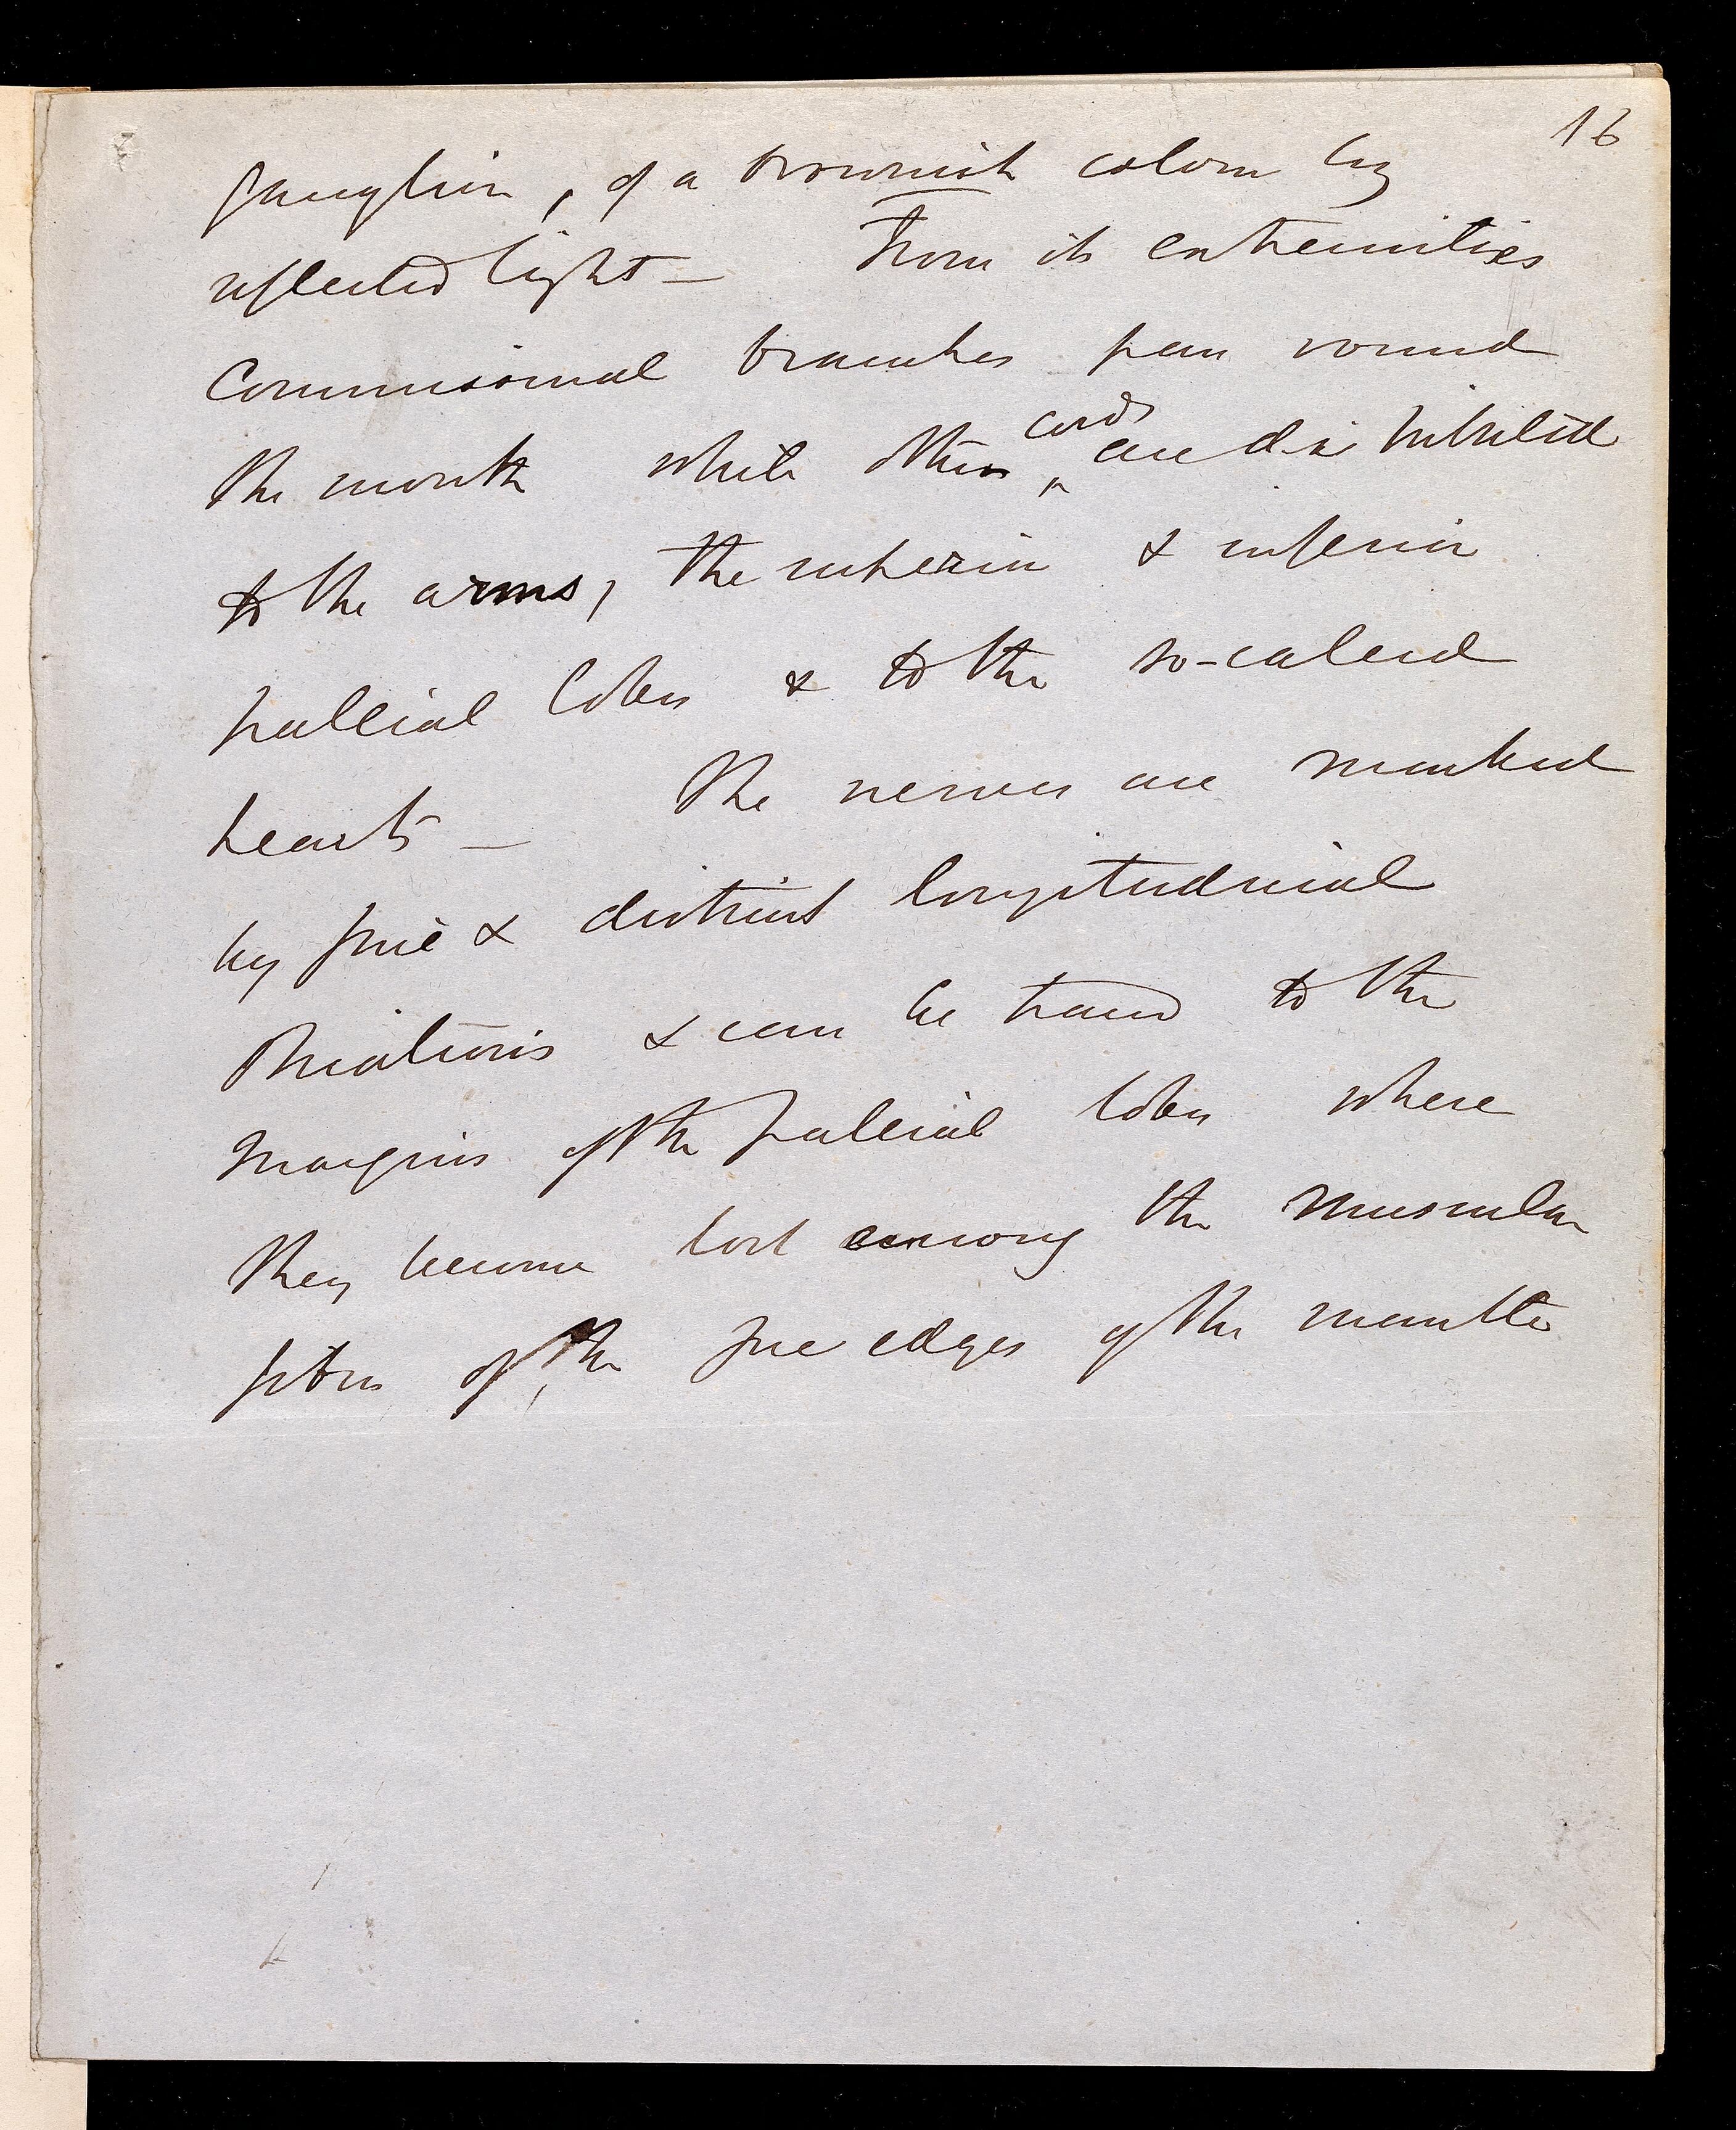 16
ganglion, of a brownish colour by
reflected light — From its extremities
Commissural branches pass round
the mouth while others cords are distributed
to the arms, the superior & inferior
pallial lobes & to the so-called
hearts — The nerves are marked
by fine & distinct longitudinal
striations & can be traced to the
margins of the pallial lobes where
they become lost among the muscular
fibres of the free edges of the mantle